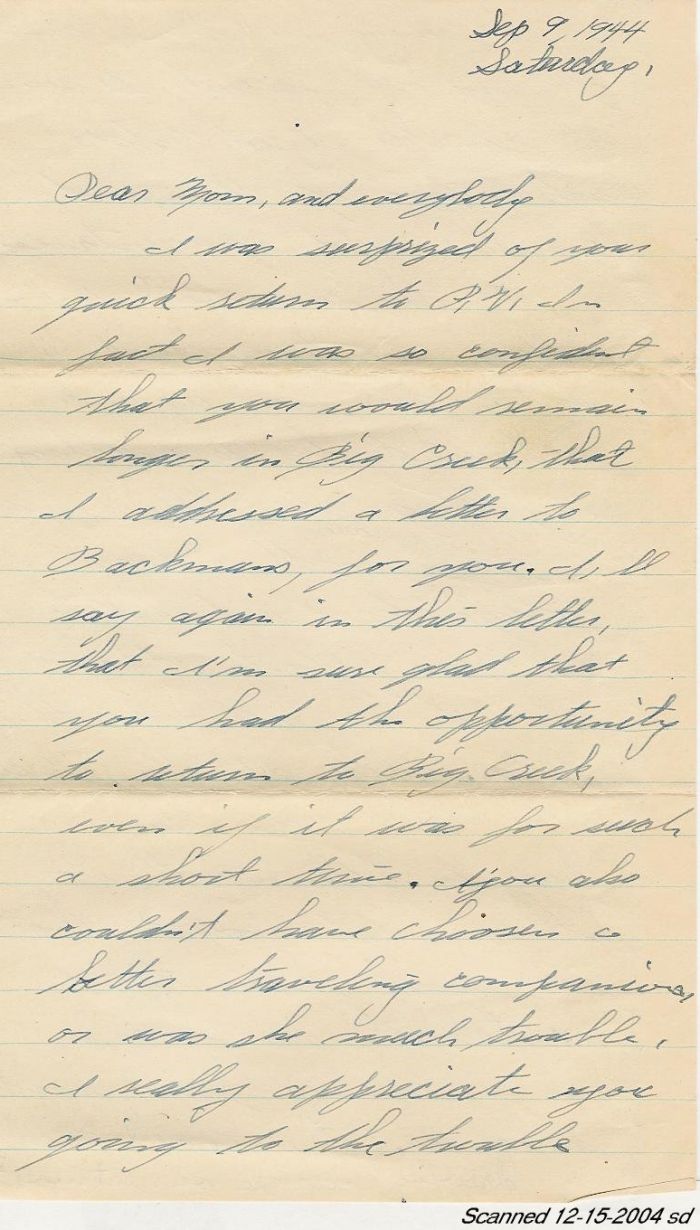 Sep 9, 1944
Saturday,
Dear Mom, and everybody
I was surprized of your
quick return to P.V. In
fact I was so confident
that you would remain
longer in Big Creek, that
I addressed a letter to
Backmans, for you. I,ll
say again in this letter,
that I'm sure glad that
you had the opportunity
to return to Big Creek,
even if it was for such
a short time. you also
couldn't have choosen a
better traveling companion,
or was she much trouble.
I really appreciate you
going to the trouble
Scanned 12-15-2004 sd